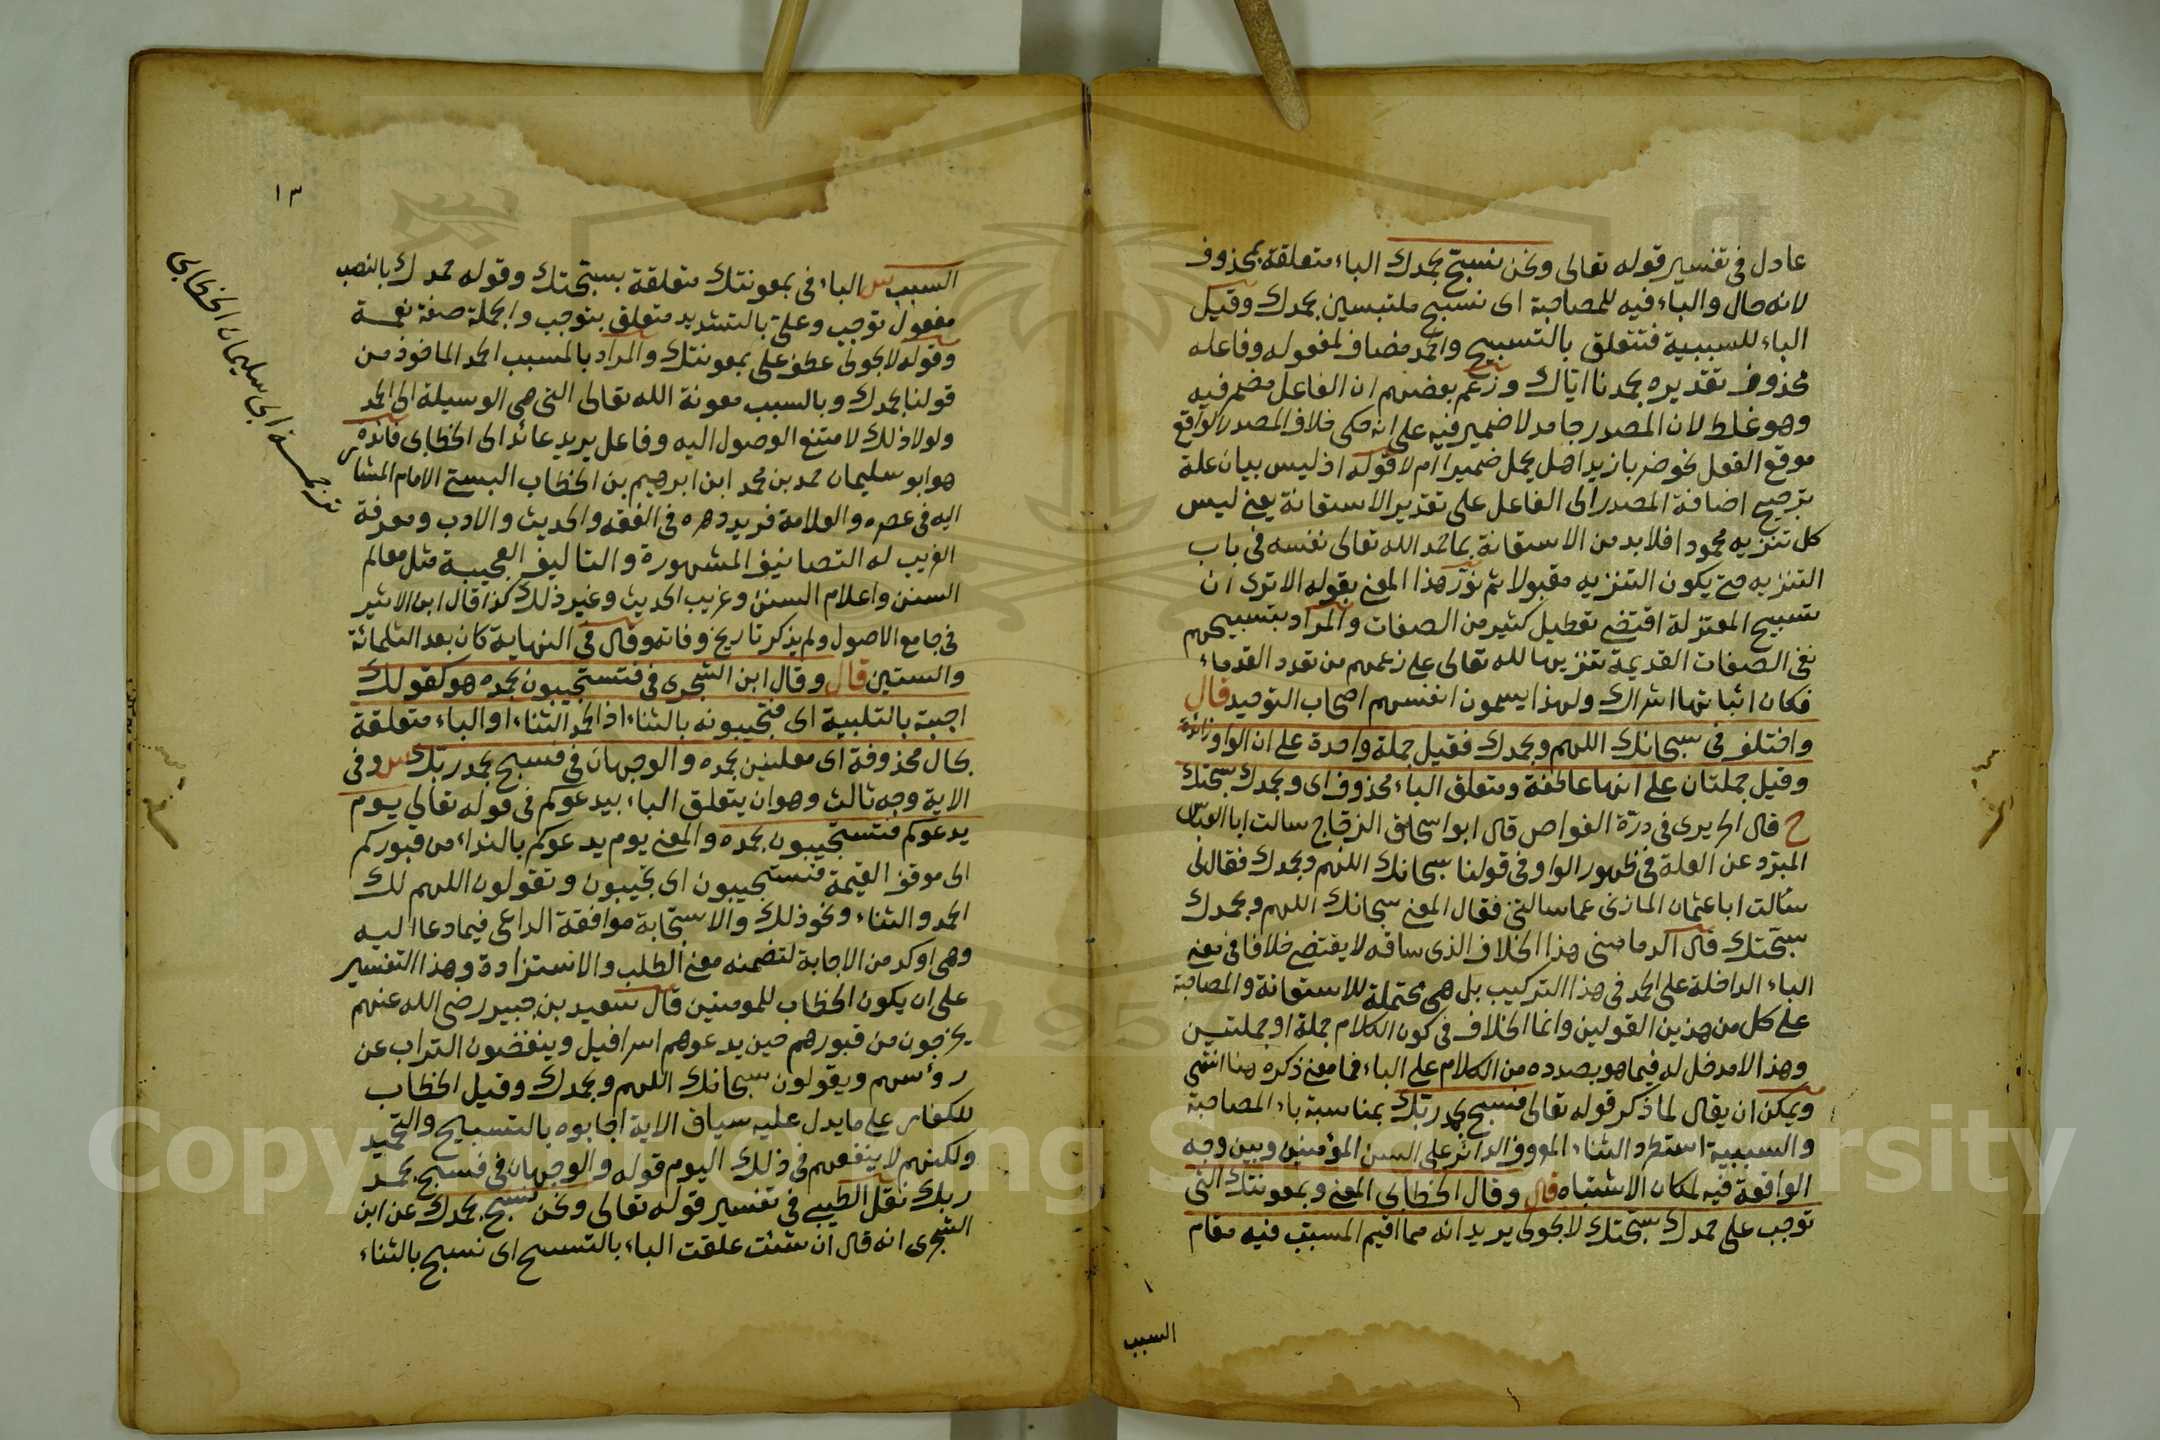 عادل في تفسير قوله تعالى ونحن نسبح بحمدك الباء متعلقة بمحذوف
لانه حال والباء فيه للمصاحبة اى نسبح ملتبسين بحمدك وقيل
الباء للسببية فتتعلق بالتسبيح والحمد مضاف لمفعوله وفاعله
محذوف تقديره بحمدنا اياك وزعم بعضهم ان الفاعل مضمر فيه
وهو غلط لان المصدر جامد لا ضمير فيه على انه حكى خلاف المصدر الواقع
موقع الفعل نحو ضربا زيدا هل يحمل ضميرا ام لا قوله اذ ليس بيان علة
ترجيح اضافة المصدر الى الفاعل على تقدير الاستعانة يعني ليس
كل تنزيه محمودا فلا بد من الاستعانة بما حمد الله تعالى نفسه في باب
التنزيه حتى يكون التنزيه مقبولا ثم نور هذا المعنى بقوله الا ترى ان
تسبيح المعتزلة اقتضى تعطيل كثير من الصفات والمراد بتسبيحهم
نفى الصفات القديمة تنزيها لله تعالى على زعمهم من تعدد القدماء
فكان اثباتها اشراك ولهذا يسمون انفسهم اصحاب التوحيد قال
واختلف في سبحانك اللهم وبحمدك فقيل جملة واحدة على ان الواو زائدة
وقيل جملتان على انها عاطفة ومتعلق الباء محذوف اى وبحمدك سبحتك
ح قال الحريرى في درة الغواص قال ابو اسحاق الزجاج سالت ابا العباس
المبرد عن العلة في ظهور الواو في قولنا سبحانك اللهم وبحمدك فقال لى
سألت ابا عثمان المازنى عما سالتنى فقال المعنى سبحانك اللهم وبحمدك
سبحتك قال الدمامينى هذا الخلاف الذى ساقه لا يقتضى خلافا في معنى
الباء الداخلة على الحمد في هذا التركيب بل هى محتملة للاستعانة والمصاحبة
على كل من هذين القولين وانما الخلاف في كون الكلام جملة او جملتين
وهذا لا مدخل له فيما هو بصدده من الكلام على الباء فما معنى ذكره هنا انتهى
ويمكن ان يقال لما ذكر قوله تعالى فسبح بحمد ربك بمناسبة باء المصاحبة
والسببية استطرد الثناء الدائر على السن المؤمنين وبين وجه
الواقعة فيه لمكان الاشتباه قال وقال الخطابى المعنى وبمعونتك التى
توجب على حمدك سبحتك لا بحولى يريد انه مما اقيم المسبب فيه مقام
السبب
١٣
ترجمة ابى سليمان الخطابى
السبب س الباء في بمعونتك متعلقة بسبحتك وقوله حمدك بالنصب
مفعول توجب وعلى بالتشديد متعلق بتوجب والجملة صفة نعمة
وقوله لا بحولى عطف على بمعونتك والمراد بالمسبب الحمد الماخوذ من
قولنا بحمدك وبالسبب معونة الله تعالى التى هى الوسيلة الى الحمد
ولولا ذلك لامتنع الوصول اليه وفاعل يريد عائد الى الخطابى فائدة
هو ابو سليمان حمد بن محمد ابن ابرهيم بن الخطاب البستى الامام المشار
اليه في عصره والعلامة فريد دهره في الفقه والحديث والادب ومعرفة
الغريب له التصانيف المشهورة والتاليف العجيبة مثل معالم
السنن واعلام السنن وغريب الحديث وغير ذلك كذا قال ابن الاثير
في جامع الاصول ولم يذكر تاريخ وفاته وقال في النهاية كان بعد الثلمائة
والستين قال وقال ابن الشجرى في فتستجيبون بحمده هو كقولك
اجبته بالتلبية اى فتجيبونه بالثناء اذ الحمد الثناء او الباء متعلقة
بحال محذوفة اى معلنين بحمده والوجهان في فسبح بحمد ربك س وفى
الاية وجه ثالث وهو ان يتعلق الباء بيدعوكم في قوله تعالى يوم
يدعوكم فتستجيبون بحمده والمعنى يوم يدعوكم بالنداء من قبوركم
الى موقف القيمة فتستجيبون اى تجيبون وتقولون اللهم لك
الحمد والثناء ونحو ذلك والاستجابة موافقة الداعى فيما دعا اليه
وهى اوكد من الاجابة لتضمنه معنى الطلب والاستزادة وهذا التفسير
على ان يكون الخطاب للمومنين قال سعيد بن جبير رضى الله عنهم
يخرجون من قبورهم حين يدعوهم اسرافيل وينفضون التراب عن
رؤسهم ويقولون سبحانك اللهم وبحمدك وقيل الخطاب
للكفار على ما يدل عليه سياق الاية اجابوه بالتسبيح والتحميد
ولكنهم لا ينفعهم في ذلك اليوم قوله والوجهان في فسبح بحمد
ربك نقل الطيبى في تفسير قوله تعالى ونحن نسبح بحمدك عن ابن
الشجرى انه قال ان شئت علقت الباء بالتسبيح اى نسبح بالثناء
Copyright © King Saud University
1957